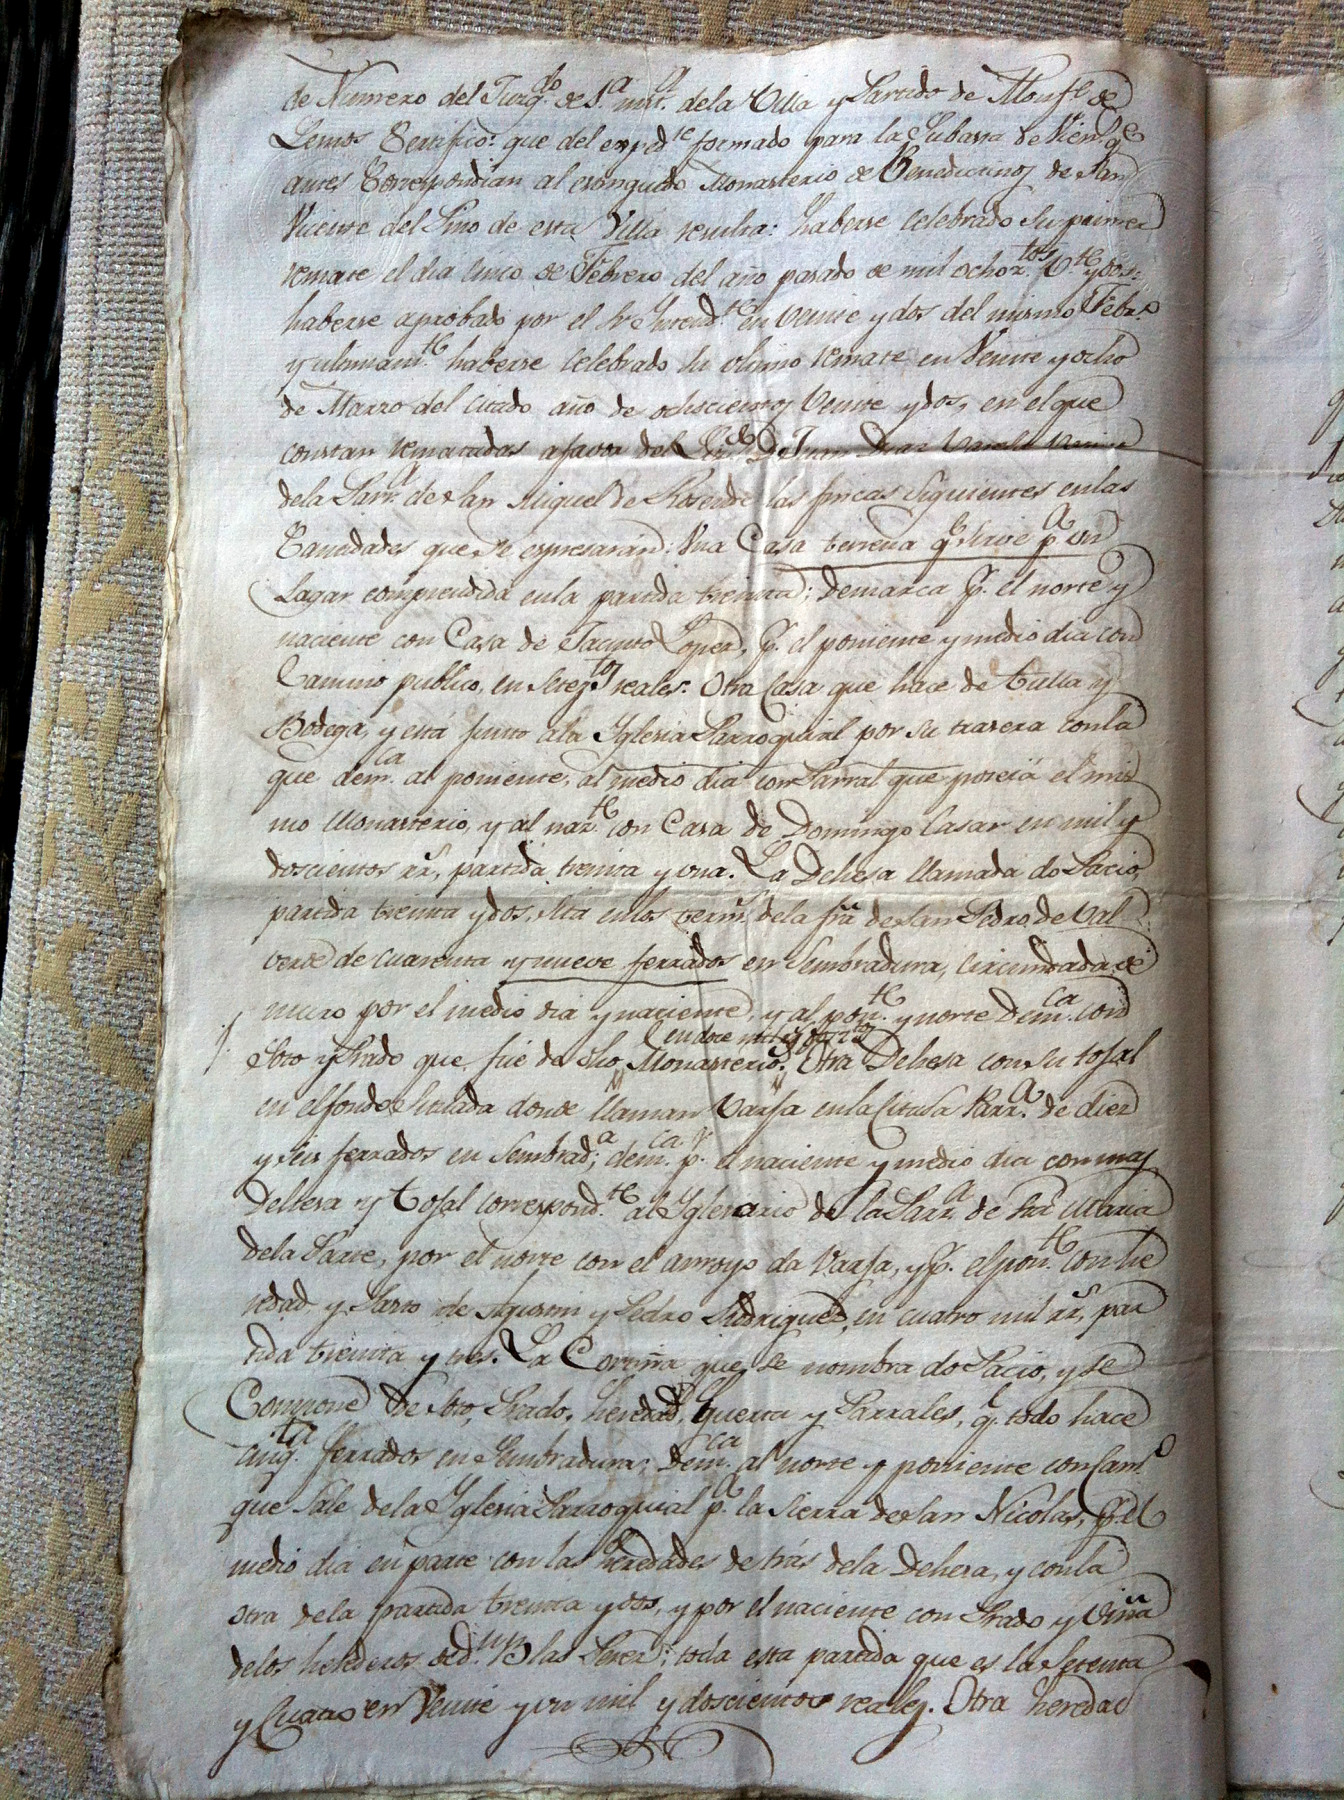 de Numero del Juzg.do de 1.a inst.a dela Villa y Partido de Monf.e de
Lemos Certifico: que del exped.te formado para la Subasta de Vien.s q.e
antes Correspondian al estinguido Monasterio de Benedictinos de San
Vicente del Pino de esta Villa resulta: haberse celebrado su primer
remate el dia cinco de Febrero del año pasado de mil ochoz.tos V.te y dos:
haberse aprobado por el Sr Intend.te en veinte y dos del mismo Febr.o
y ultimam.te haberse celebrado su ultimo remate en Veinte y ocho
de Marzo del citado año de ochocientos Veinte y dos, en el que
constan rematadas afavor del D.n Juan Diaz Varela Vecino
dela Parr.a de San Miguel de Rosende las fincas Siguientes en las
Cantidades que se espresarán: Una Casa terrena q.e sirve p.a un
Lagar comprendida enla partida treinta; demarca p.r el norte y
naciente con Casa de Jacinto Lopez, p.r el poniente y medio dia con
Camino publico, en seiez.tos reales. Otra Casa que hace de Tulla y
Bodega, y está junto ala Yglesia Parroquial por su trasera con la
que dem.ca al poniente, al medio dia con Parral que poseiá el mis
mo Monasterio, y al naz.te con Casa de Domingo Casar en mil y
doscientos rr.s, partida treinta y una. La Dehesa llamada do Pacio,
partida treinta y dos, sita enlos term.s dela fra de San Pedro de Val
verde de cuarenta y nueve ferrados en Sembradura, circundada de
muro por el medio dia y naciente, y al pon.te y norte Dem.ca con
en doce mil y
Soto y Prado que fué de dho Monasterio. Otra Dehesa con su tojal
en el fondo Sitiada donde llaman Varja enla Citada Parr.a de diez
y seis ferrados en Sembrad.a; dem.ca p.r el naciente y medio dia con mas
Dehesa y tojal correspond.te al Yglesario de la Parr.a de Sta Maria
dela Parte, por el norte con el arroyo da Varja, y p.r el pon.te con he
redad y Parto de Agustin y Pedro Rodriguez, en cuatro mil rr.s, par
tida treinta y tres. La Cortiña que se nombra do Pacio, y se
Compone de Soto, Prado, heredad, Huerta y Parrales, q.e todo hace
cinq.ta ferrados en Sembradura; Dem.ca al norte y poniente con Cam.o
que Sale dela Yglesia Parroquial p.a la Sierra de San Nicolas, p.r el
medio dia en parte con las heredades de trás dela Dehesa, y con la
otra dela partida treinta y dos, y por el naciente con Prado y Viña
delos herederos de d.n Blas Perez; toda esta partida que es la Setenta
y Cuatro en Veinte y un mil y doscientos reales. Otra heredad